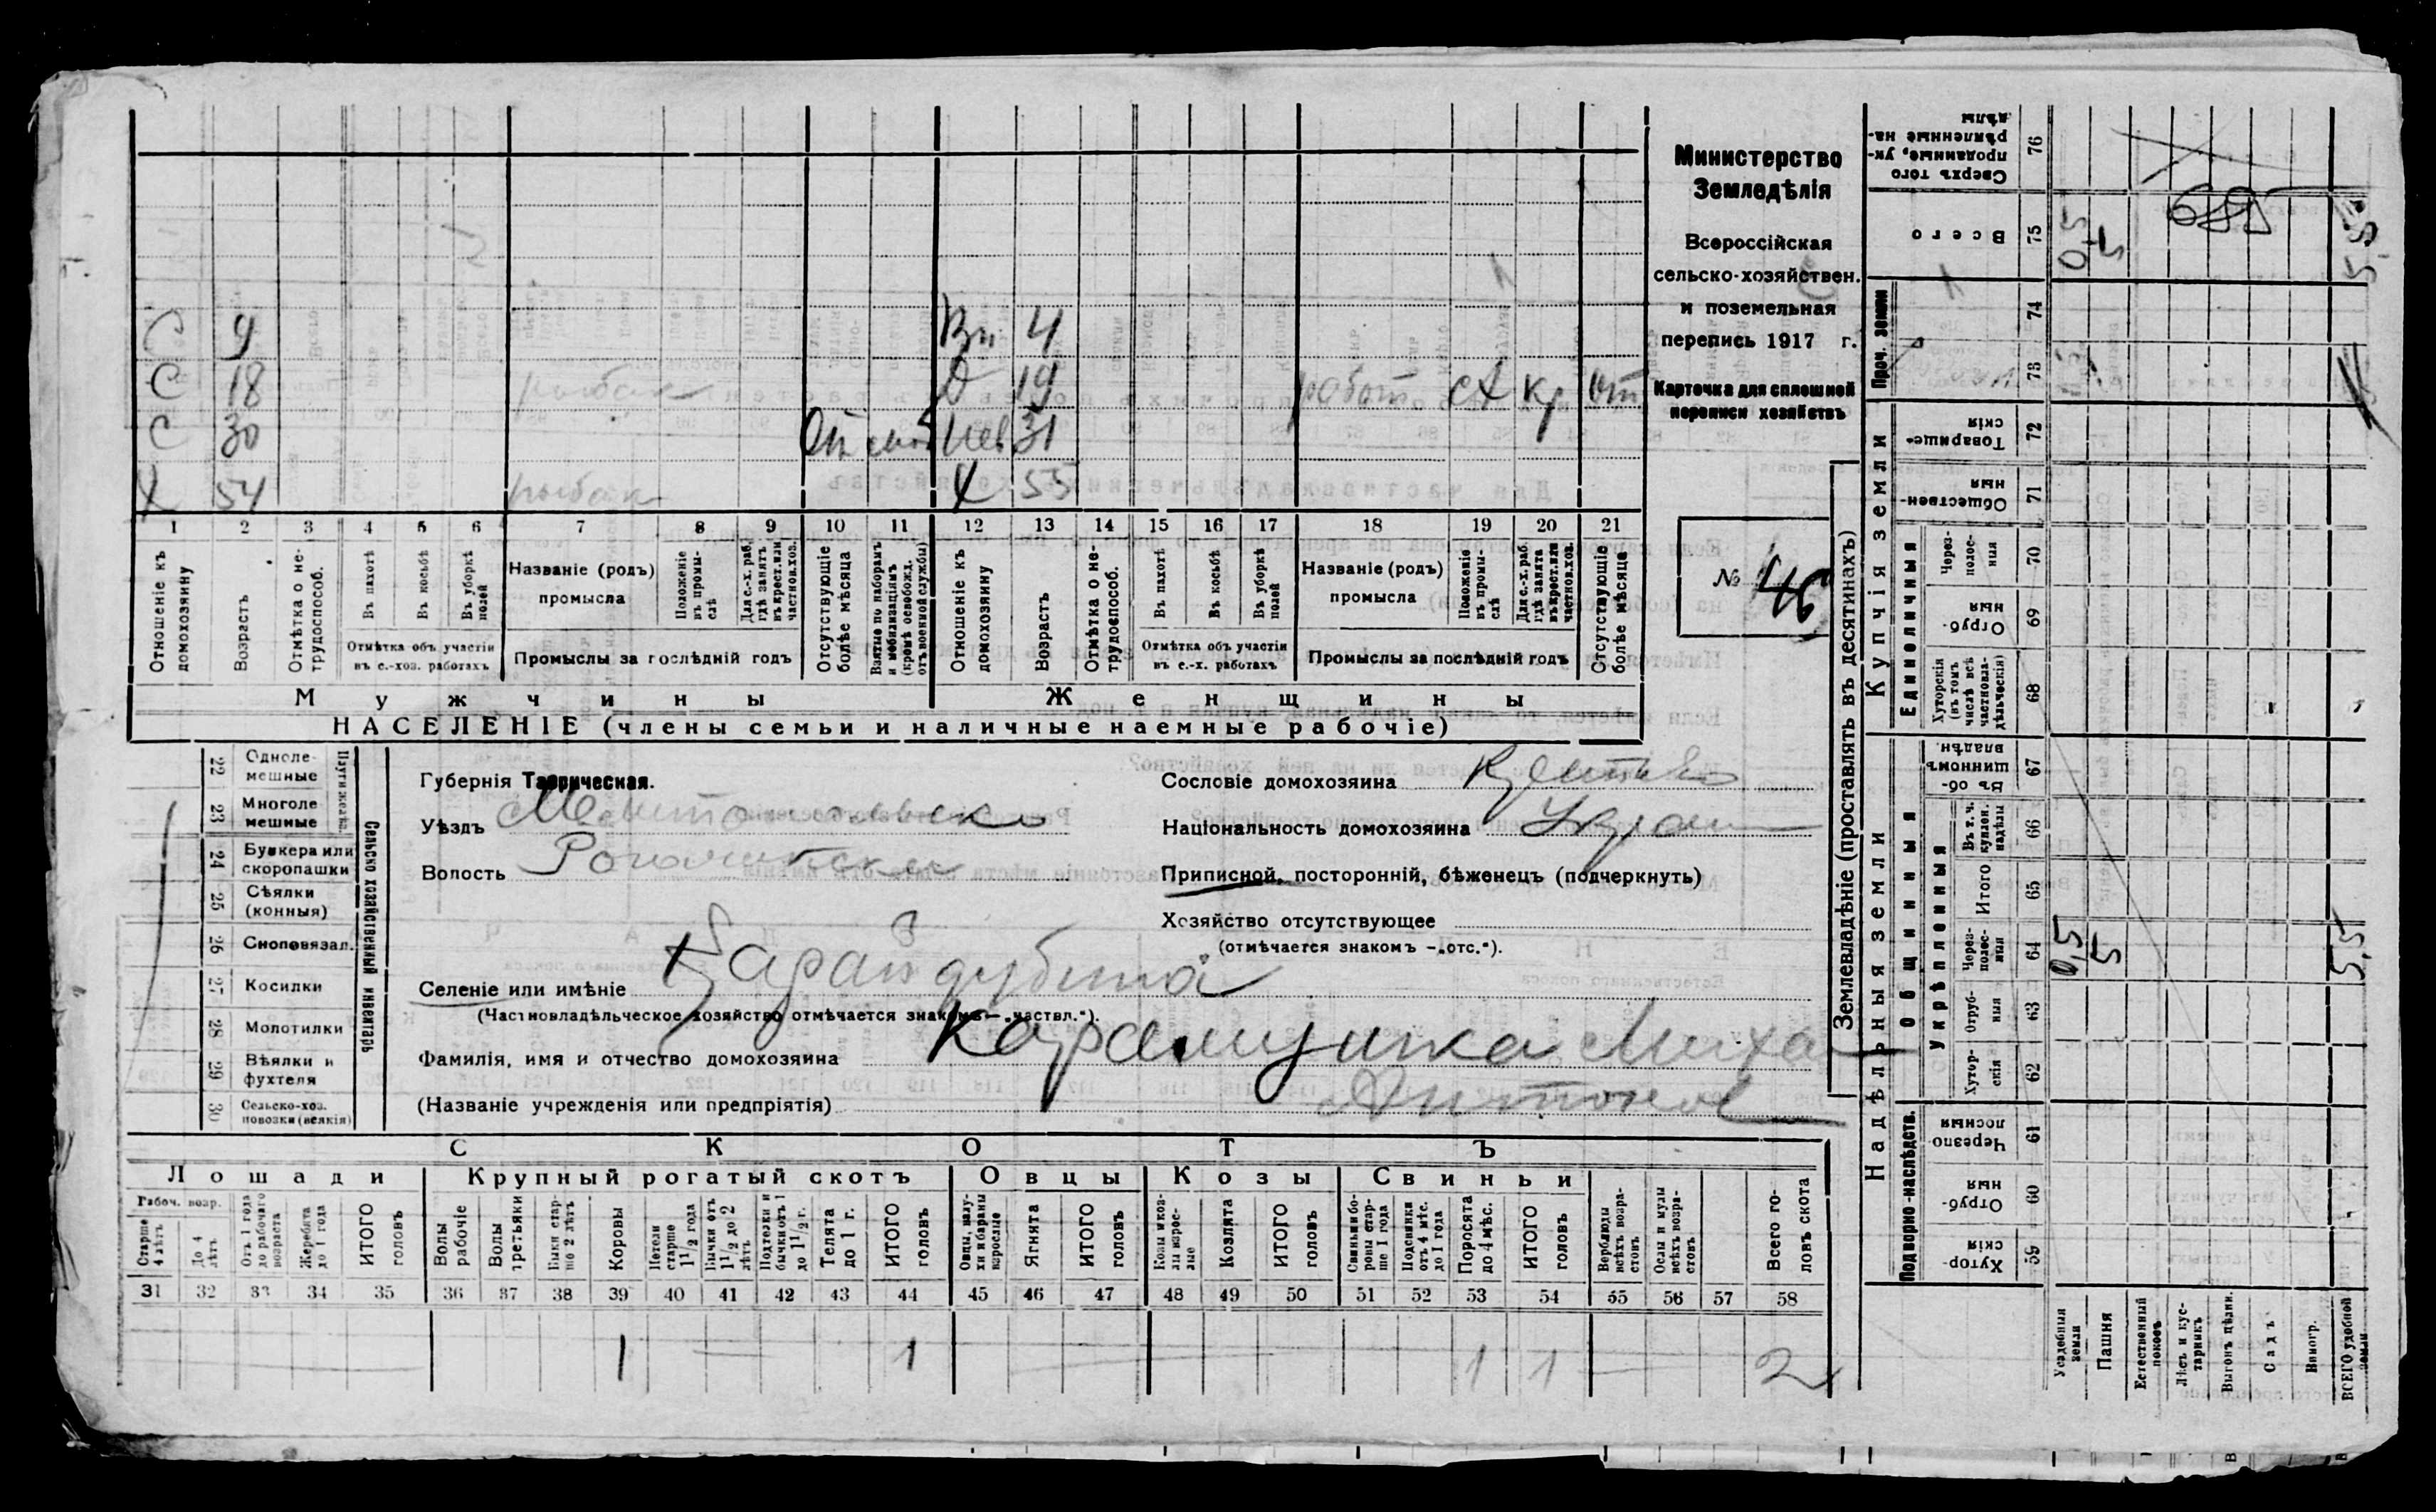 С 9 Вн 4
С 18 рыбак Д 19 работ сх кр от
С 30 От моб Нев 31
Х 54 рыбак Х 55
1 2 3 4 5 6 7 8 9 10 11 12 13 14 15 16 17 18 19 20 21
Отношеніе къ домохозяину
Возрастъ
Отмѣтка о не-трудоспособ.
Въ пахотѣ
Въ косьбѣ
Въ уборкѣ полей
Отмѣтка объ участіи
въ с.-хоз. работахъ
Названіе (родъ)
промысла
Положеніе въ промы-слѣ
Для с.-х. раб. гдѣ занятъ въ крест. или частн. хоз.
Промыслы за послѣдній годъ
Отсутствующіе болѣе мѣсяца
Взятые по наборамъ и мобилизаціямъ (кромѣ освобожд. отъ военной службы)
Отношеніе къ домохозяину
Возрастъ
Отмѣтка о не-трудоспособ.
Въ пахотѣ
Въ косьбѣ
Въ уборкѣ полей
Отмѣтка объ участіи
въ с.-х. работахъ
Названіе (родъ)
промысла
Положеніе въ промы-слѣ
Для с.-х. раб. гдѣ занята въ крест. или частн. хоз.
Промыслы за послѣдній годъ
Отсутствующіе болѣе мѣсяца
Мужчины Женщины
НАСЕЛЕНІЕ (члены семьи и наличные наемные рабочіе)
Министерство
Земледѣлія
Всероссійская
сельско-хозяйствен.
и поземельная
перепись 1917 г.
Карточка для сплошной
переписи хозяйствъ
№ 46
22 Одноле-мешные
23 Многоле мешные
24 Буккера или скоропашки
25 Сѣялки (конныя)
26 Сноповязал.
27 Косилки
28 Молотилки
29 Вѣялки и фухтеля
30 Сельско-хоз. повозки (всякія)
Сельско хозяйственный инвентарь
Губернія Таврическая.
Уѣздъ Мелитопольск
Волость Рогачикская
Сословіе домохозяина
Національность домохозяина Украин
Приписной, посторонній, бѣженецъ (подчеркнуть)
Хозяйство отсутствующее
(отмѣчается знакомъ —„отс.“).
Селеніе или имѣніе Карайдубина
(Частновладѣльческое хозяйство отмѣчается знакомъ—„частвл.“).
Фамилія, имя и отчество домохозяина Карамушка Миха
(Названіе учрежденія или предпріятія) Антонов
СКОТЪ
Лошади Крупный рогатый скотъ Овцы Козы Свиньи
Рабоч. возр.
Старше 4 лѣтъ
До 4 лѣтъ
Отъ 1 года до рабочаго возраста
Жеребята до 1 года
ИТОГО головъ
Волы рабочіе
Волы третьяки
Быки стар-ше 2 лѣтъ
Коровы
Нетели старше 1 1/2 года
Бычки отъ 1 1/2 до 2 лѣтъ
Подтелки и бычки отъ 1 до 1 1/2 г.
Телята до 1 г.
ИТОГО головъ
Овцы, валу-хи и бараны взрослые
Ягнята
ИТОГО головъ
Козы и коз-лы взрос-лые
Козлята
ИТОГО головъ
Свиньи и бо-ровы стар-ше 1 года
Подсвинки отъ 4 мѣс. до 1 года
Поросята до 4 мѣс.
ИТОГО головъ
Верблюды всѣхъ возра-стовъ
Ослы и мулы всѣхъ возра-стовъ
Всего го-ловъ скота
31 32 33 34 35 36 37 38 39 40 41 42 43 44 45 46 47 48 49 50 51 52 53 54 55 56 57 58
1 1 1 1 2
Землевладѣніе (проставлять въ десятинахъ)
Купчія земли
Надѣльныя земли
Сверхъ того проданные, ук-рѣпленные на-дѣлы 76
Всего 75 0,5 5 5,5
Проч. земли 74 73
Товарище-скія 72
Обществен-ныя 71
Единоличныя
Через-полос-ныя 70
Отруб-ныя 69
Хуторскія (въ томъ числѣ всѣ частновла-дѣльческія) 68
Общинныя
Въ об-щинномъ владѣн. 67
Укрѣпленныя
Въ т. ч. куплен. надѣлы 66
Итого 65
Через-полос-ныя 64 0,5 5 5,5
Отруб-ныя 63
Хутор-скія 62
Подворно-наслѣдств.
Черезпо лосныя 61
Отруб-ныя 60
Хутор-скія 59
Усадебныя земли
Пашня
Естественный покосъ
Лѣсъ и кус-тарникъ
Выгонъ цѣлин.
Садъ
Виногр.
ВСЕГО удобной земли